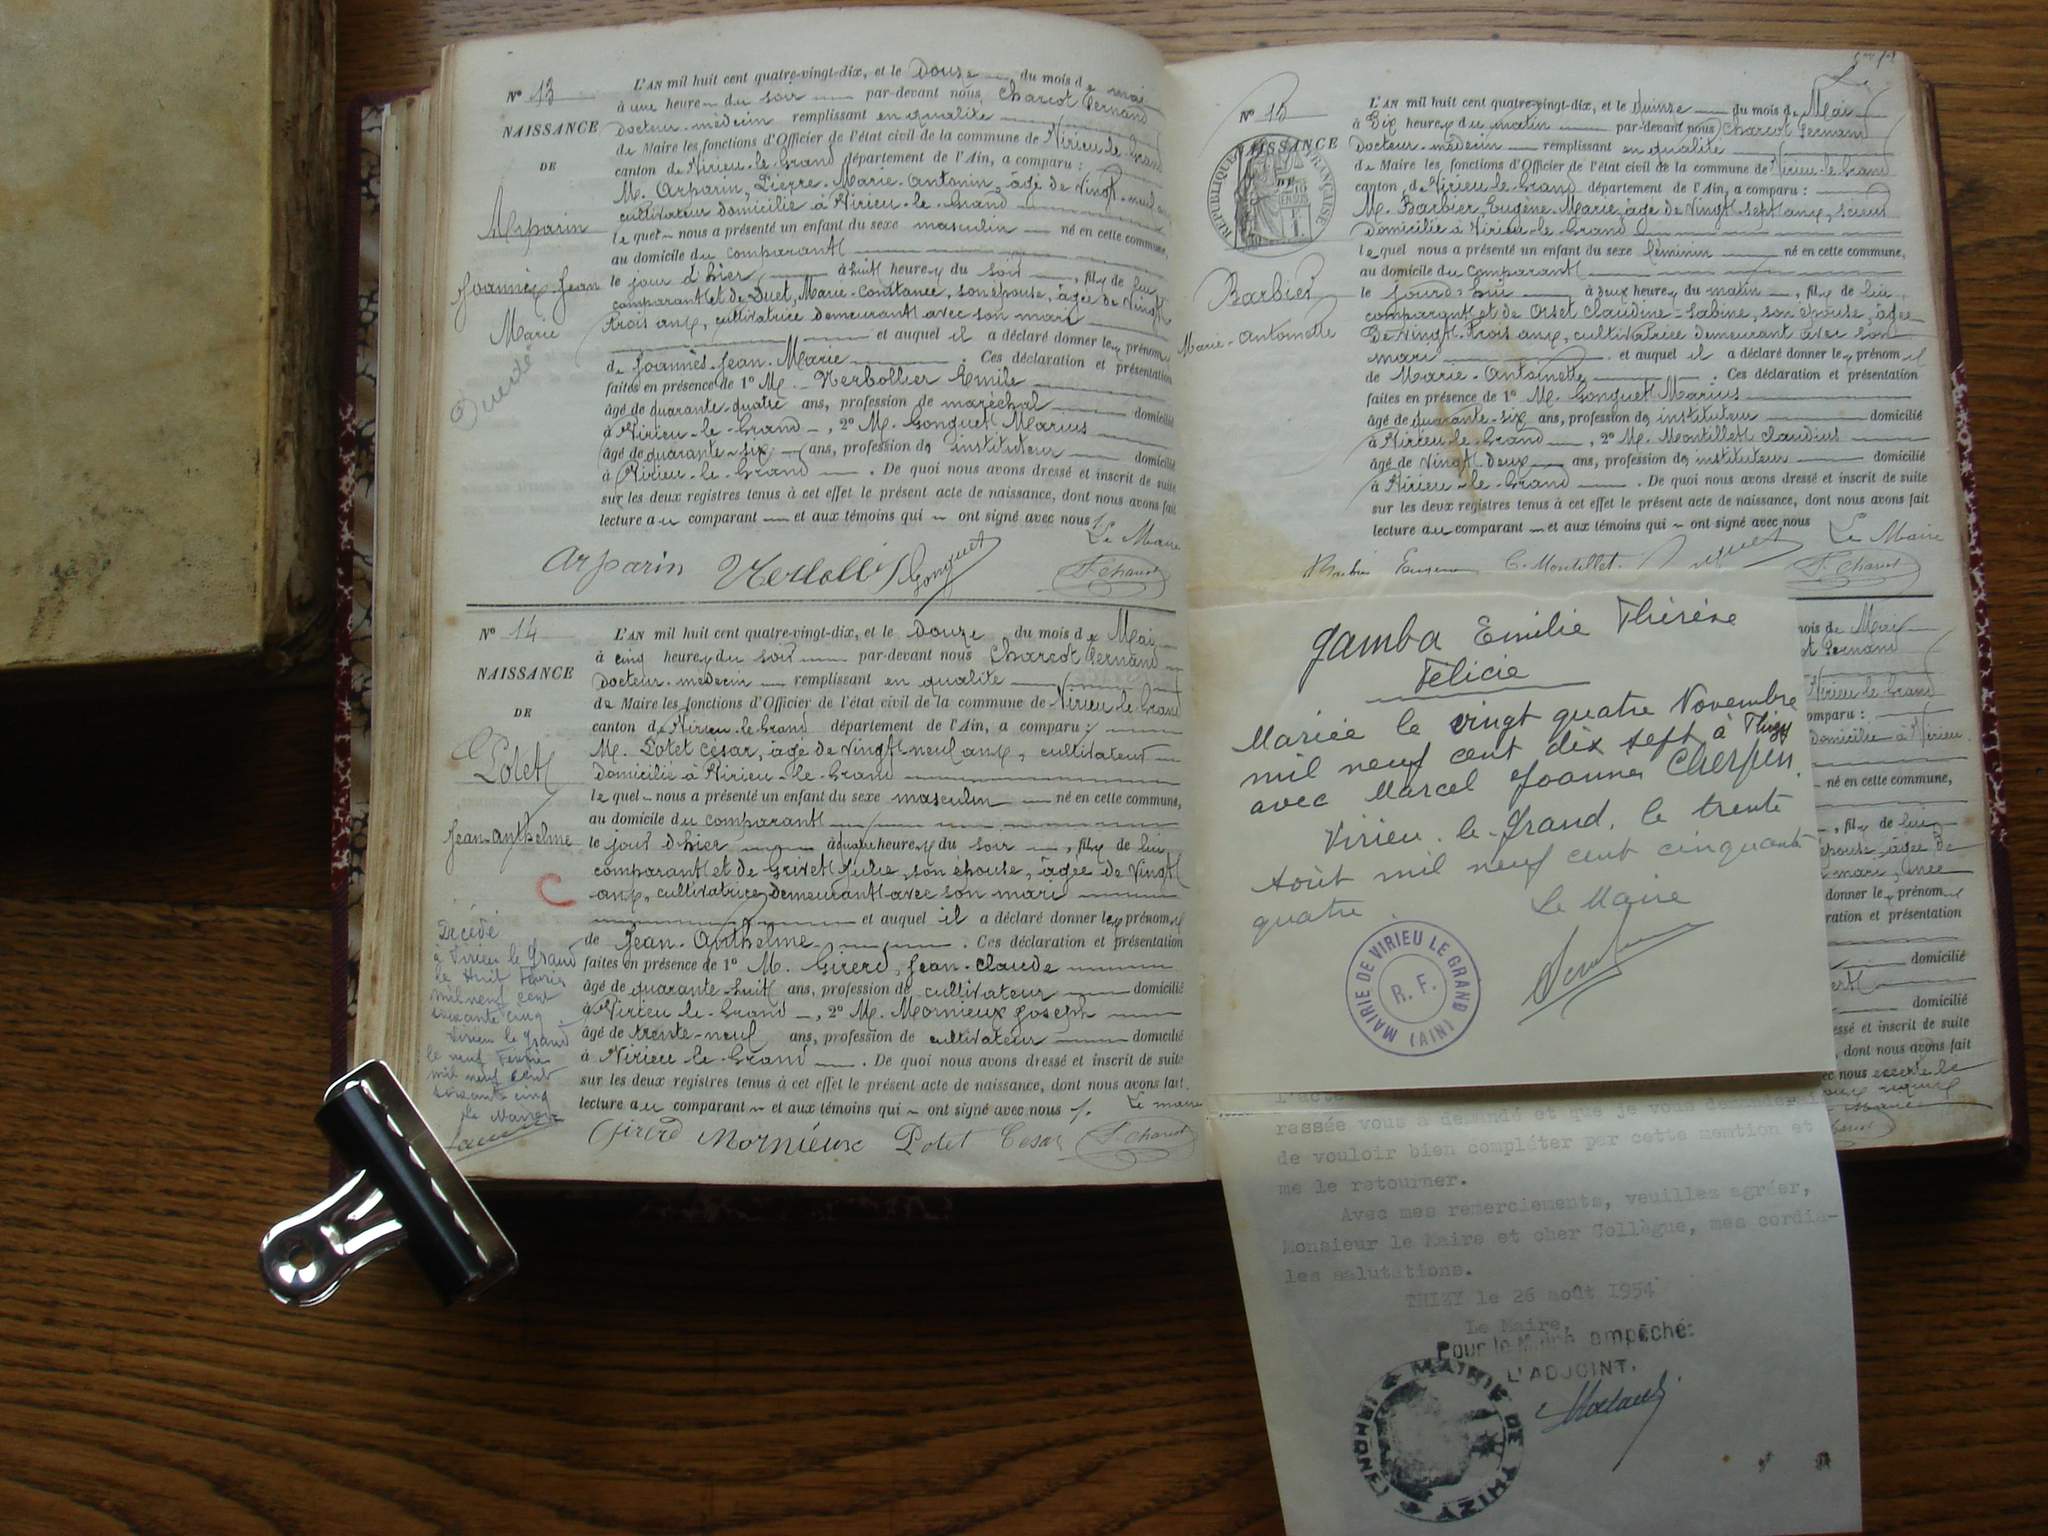 N° 13
NAISSANCE
DE
Arparin
Joannès-Jean
Marie
L'AN mil huit cent quatre-vingt-dix, et le douze du mois de mai
à une heure du soir par-devant nous, Charcot Fernand
Docteur-médecin remplissant en qualité
de Maire les fonctions d'Officier de l'état civil de la commune de Virieu-le-Grand
canton de Virieu-le-Grand département de l'Ain, a comparu :
M. Arparin, Pierre-Marie-Antonin, âgé de vingt-neuf ans
cultivateur domicilié à Virieu-le-Grand
lequel nous a présenté un enfant du sexe masculin né en cette commune,
au domicile du comparant
le jour d'hier à huit heures du soir, fils de lui
comparant et de Duet, Marie-Constance, son épouse, âgée de vingt
trois ans, cultivatrice demeurant avec son mari
et auquel il a déclaré donner les prénoms
de Joannès-Jean-Marie. Ces déclaration et présentation
faites en présence de 1° M. Verbollier Emile
âgé de quarante-quatre ans, profession de maréchal domicilié
à Virieu-le-Grand, 2° M. Gonguet Marius
âgé de quarante-six ans, profession de instituteur domicilié
à Virieu-le-Grand. De quoi nous avons dressé et inscrit de suite
sur les deux registres tenus à cet effet le présent acte de naissance, dont nous avons fait
lecture au comparant et aux témoins qui ont signé avec nous
Le Maire
Arparin Gonguet F. Charcot
N° 14
NAISSANCE
DE
Potet
Jean-Anthelme
L'AN mil huit cent quatre-vingt-dix, et le douze du mois de Mai
à cinq heures du soir par-devant nous Charcot Fernand
Docteur-médecin remplissant en qualité
de Maire les fonctions d'Officier de l'état civil de la commune de Virieu-le-Grand
canton de Virieu-le-Grand département de l'Ain, a comparu :
M. Potet César, âgé de vingt neuf ans, cultivateur
domicilié à Virieu-le-Grand
lequel nous a présenté un enfant du sexe masculin né en cette commune,
au domicile du comparant
le jour d'hier à quatre heures du soir, fils de lui
comparant et de Grivet Julie, son épouse, âgée de vingt
ans, cultivatrice demeurant avec son mari
et auquel il a déclaré donner les prénoms
de Jean-Anthelme. Ces déclaration et présentation
faites en présence de 1° M. Girerd, Jean-Claude
âgé de quarante-huit ans, profession de cultivateur domicilié
à Virieu-le-Grand, 2° M. Mornieux Joseph
âgé de trente-neuf ans, profession de cultivateur domicilié
à Virieu-le-Grand. De quoi nous avons dressé et inscrit de suite
sur les deux registres tenus à cet effet le présent acte de naissance, dont nous avons fait
lecture au comparant et aux témoins qui ont signé avec nous
Le maire
Girerd Mornieux Potet Cesar F. Charcot
Décédé
à Virieu le Grand
le Huit Février
mil neuf cent
soixante cinq
Virieu le Grand
le neuf Février
mil neuf cent
soixante cinq
Le Maire
N° 15
NAISSANCE
DE
RÉPUBLIQUE FRANÇAISE
Barbier
Marie-Antoinette
L'AN mil huit cent quatre-vingt-dix, et le quinze du mois de Mai
à dix heures du matin par-devant nous Charcot Fernand
Docteur-médecin remplissant en qualité
de Maire les fonctions d'Officier de l'état civil de la commune de Virieu-le-Grand
canton de Virieu-le-Grand département de l'Ain, a comparu :
M. Barbier, Eugène-Marie, âgé de vingt-sept ans, scieur
domicilié à Virieu-le-Grand
lequel nous a présenté un enfant du sexe féminin né en cette commune,
au domicile du comparant
le jourd'hui à deux heures du matin, fille de lui
comparant et de Orset Claudine-Sabine, son épouse, âgée
de vingt-trois ans, cultivatrice demeurant avec son
mari et auquel il a déclaré donner les prénoms
de Marie-Antoinette. Ces déclaration et présentation
faites en présence de 1° M. Gonguet Marius
âgé de quarante-six ans, profession de instituteur domicilié
à Virieu-le-Grand, 2° M. Montillet Claudius
âgé de vingt deux ans, profession de instituteur domicilié
à Virieu-le-Grand. De quoi nous avons dressé et inscrit de suite
sur les deux registres tenus à cet effet le présent acte de naissance, dont nous avons fait
lecture au comparant et aux témoins qui ont signé avec nous
Le Maire
Barbier Eugène C. Montillet F. Charcot
Gamba Emilie Thérèse
Félicie
Mariée le vingt quatre Novembre
mil neuf cent dix sept à Thizy
avec Marcel Joannes Cherpin.
Virieu-le-Grand, le trente
Août mil neuf cent cinquante
quatre.
Le Maire
MAIRIE DE VIRIEU LE GRAND (AIN)
R. F.
mois de Mai
Fernand
Virieu-le-Grand
comparu :
domicilié à Virieu
né en cette commune,
, fille de lui
épouse, âgée de
mari
donner les prénoms
ration et présentation
domicilié
domicilié
ssé et inscrit de suite
, dont nous avons fait
L'acte
ressée vous a demandé et que je vous demanderai
de vouloir bien compléter par cette mention et
me le retourner.
Avec mes remerciements, veuillez agréer,
Monsieur le Maire et cher Collègue, mes cordia-
les salutations.
THIZY le 26 août 1954
Le Maire,
Pour le Maire empêché:
L'ADJOINT,
MAIRIE DE THIZY (RHONE)